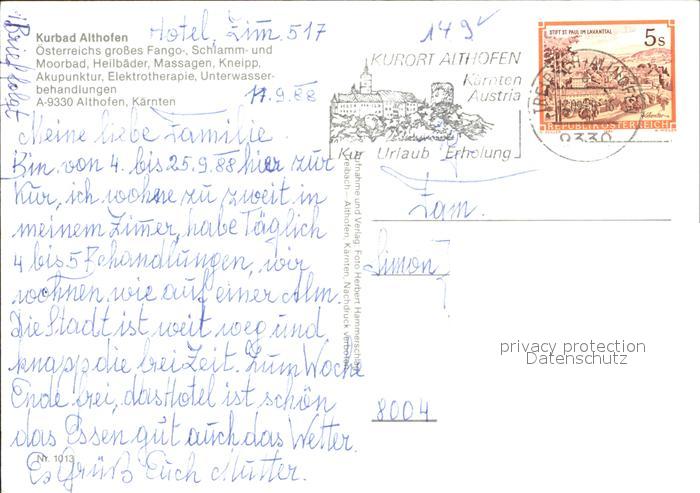 Kurbad Althofen
Österreichs großes Fango-, Schlamm- und
Moorbad, Heilbäder, Massagen, Kneipp,
Akupunktur, Elektrotherapie, Unterwasser-
behandlungen
A-9330 Althofen, Kärnten
Brief folgt
Hotel, Zim. 517
17.9.88
Meine liebe Familie.
Bin von 4. bis 25.9.88 hier zur
Kur, ich wohne zu zweit in
meinem Zimmer, habe Täglich
4 bis 5 Behandlungen, wir
wohnen wie auf einer Alm.
Die Stadt ist weit weg und
knapp die freiZeit. Zum Woche
Ende frei, das Hotel ist schön
das Essen gut auch das Wetter.
Es Grüß Euch Mutter.
Nr. 1013
Aufnahme und Verlag: Foto Herbert Hammerschlag
Althofen, Kärnten, Nachdruck verboten
149
KURORT ALTHOFEN
Kärnten
Austria
Kur Urlaub Erholung
STIFT ST. PAUL IM LAVANTTAL
5s
REPUBLIK ÖSTERREICH
9330
Fam.
Simon
8004
privacy protection
Datenschutz